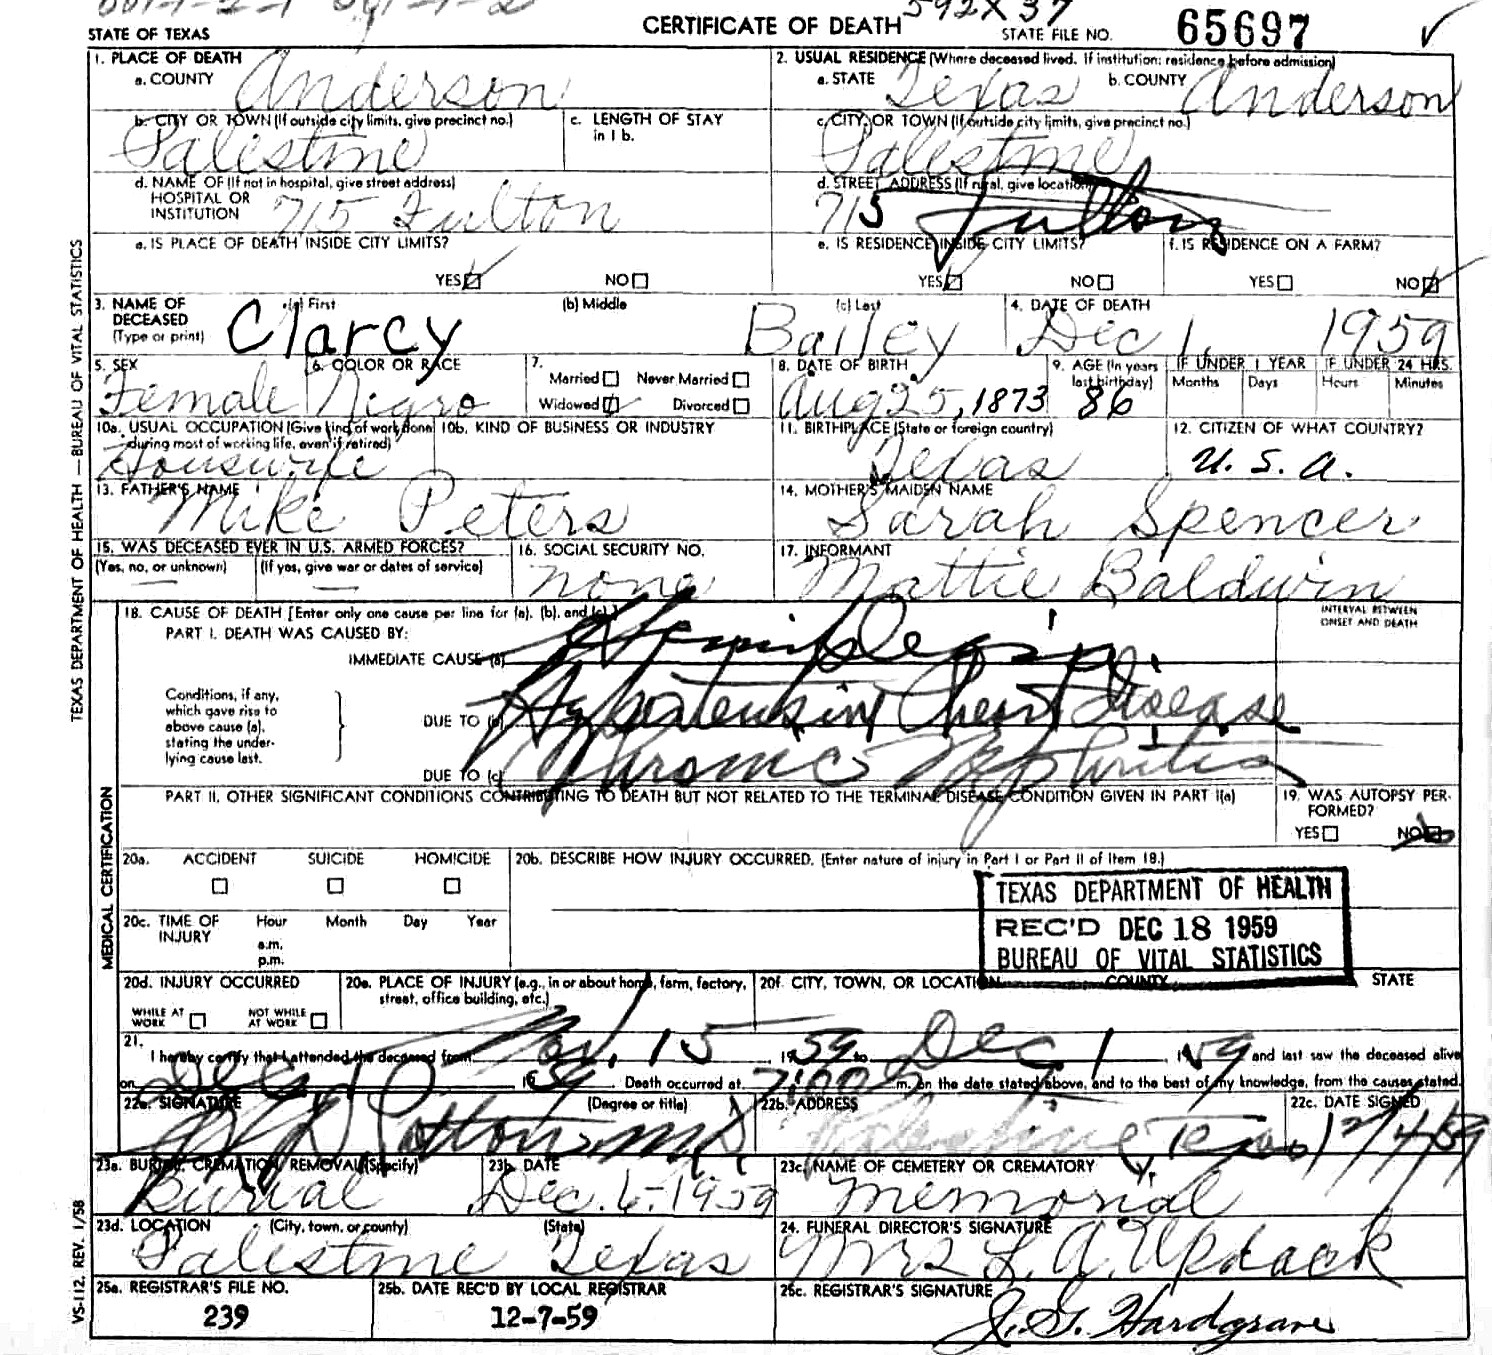 592X37
STATE OF TEXAS CERTIFICATE OF DEATH STATE FILE NO. 65697
1. PLACE OF DEATH
a. COUNTY Anderson
2. USUAL RESIDENCE (Where deceased lived. If institution: residence before admission)
a. STATE Texas b. COUNTY Anderson
b. CITY OR TOWN (If outside city limits, give precinct no.) Palestine
c. LENGTH OF STAY in 1 b.
c. CITY OR TOWN (If outside city limits, give precinct no.) Palestine
d. NAME OF (If not in hospital, give street address) HOSPITAL OR INSTITUTION 715 Fulton
d. STREET ADDRESS (If rural, give location) 715 Fulton
e. IS PLACE OF DEATH INSIDE CITY LIMITS?
YES NO
e. IS RESIDENCE INSIDE CITY LIMITS?
YES NO
f. IS RESIDENCE ON A FARM?
YES NO
3. NAME OF DECEASED (Type or print) (a) First Clarcy (b) Middle (c) Last Bailey
4. DATE OF DEATH Dec 1, 1959
5. SEX Female
6. COLOR OR RACE Negro
7. Married Never Married
Widowed Divorced
8. DATE OF BIRTH Aug 25, 1873
9. AGE (In years last birthday) 86
IF UNDER 1 YEAR Months Days
IF UNDER 24 HRS. Hours Minutes
10a. USUAL OCCUPATION (Give kind of work done during most of working life, even if retired) Houswife
10b. KIND OF BUSINESS OR INDUSTRY
11. BIRTHPLACE (State or foreign country) Texas
12. CITIZEN OF WHAT COUNTRY? U.S.A.
13. FATHER'S NAME Mike Peters
14. MOTHER'S MAIDEN NAME Sarah Spencer
15. WAS DECEASED EVER IN U.S. ARMED FORCES?
(Yes, no, or unknown) — (If yes, give war or dates of service) —
16. SOCIAL SECURITY NO. none
17. INFORMANT Mattie Baldwin
18. CAUSE OF DEATH [Enter only one cause per line for (a), (b), and (c).]
INTERVAL BETWEEN ONSET AND DEATH
PART I. DEATH WAS CAUSED BY:
IMMEDIATE CAUSE (a) Hemiplegia
Conditions, if any, which gave rise to above cause (a), stating the under-lying cause last.
DUE TO (b) Hypertensive Heart Disease
DUE TO (c) Chronic Nephritis
PART II. OTHER SIGNIFICANT CONDITIONS CONTRIBUTING TO DEATH BUT NOT RELATED TO THE TERMINAL DISEASE CONDITION GIVEN IN PART I(a)
19. WAS AUTOPSY PERFORMED?
YES NO
20a. ACCIDENT SUICIDE HOMICIDE
20b. DESCRIBE HOW INJURY OCCURRED. (Enter nature of injury in Part I or Part II of Item 18.)
20c. TIME OF INJURY Hour Month Day Year
a.m.
p.m.
TEXAS DEPARTMENT OF HEALTH
REC'D DEC 18 1959
BUREAU OF VITAL STATISTICS
20d. INJURY OCCURRED
WHILE AT WORK NOT WHILE AT WORK
20e. PLACE OF INJURY (e.g., in or about home, farm, factory, street, office building, etc.)
20f. CITY, TOWN, OR LOCATION COUNTY STATE
21. I hereby certify that I attended the deceased from Nov. 15, 1959 to Dec 1, 1959 and last saw the deceased alive
on Dec 1, 1959. Death occurred at 7:00 m. on the date stated above, and to the best of my knowledge, from the causes stated.
22a. SIGNATURE (Degree or title) Patton MD
22b. ADDRESS Palestine Texas
22c. DATE SIGNED 12/4/59
23a. BURIAL, CREMATION, REMOVAL (Specify) Burial
23b. DATE Dec. 6-1959
23c. NAME OF CEMETERY OR CREMATORY Memorial
23d. LOCATION (City, town, or county) (State) Palestine Texas
24. FUNERAL DIRECTOR'S SIGNATURE Mrs L. A. Updack
25a. REGISTRAR'S FILE NO. 239
25b. DATE REC'D BY LOCAL REGISTRAR 12-7-59
25c. REGISTRAR'S SIGNATURE J. G. Hardgrave
TEXAS DEPARTMENT OF HEALTH — BUREAU OF VITAL STATISTICS
MEDICAL CERTIFICATION
VS-112. REV. 1/58